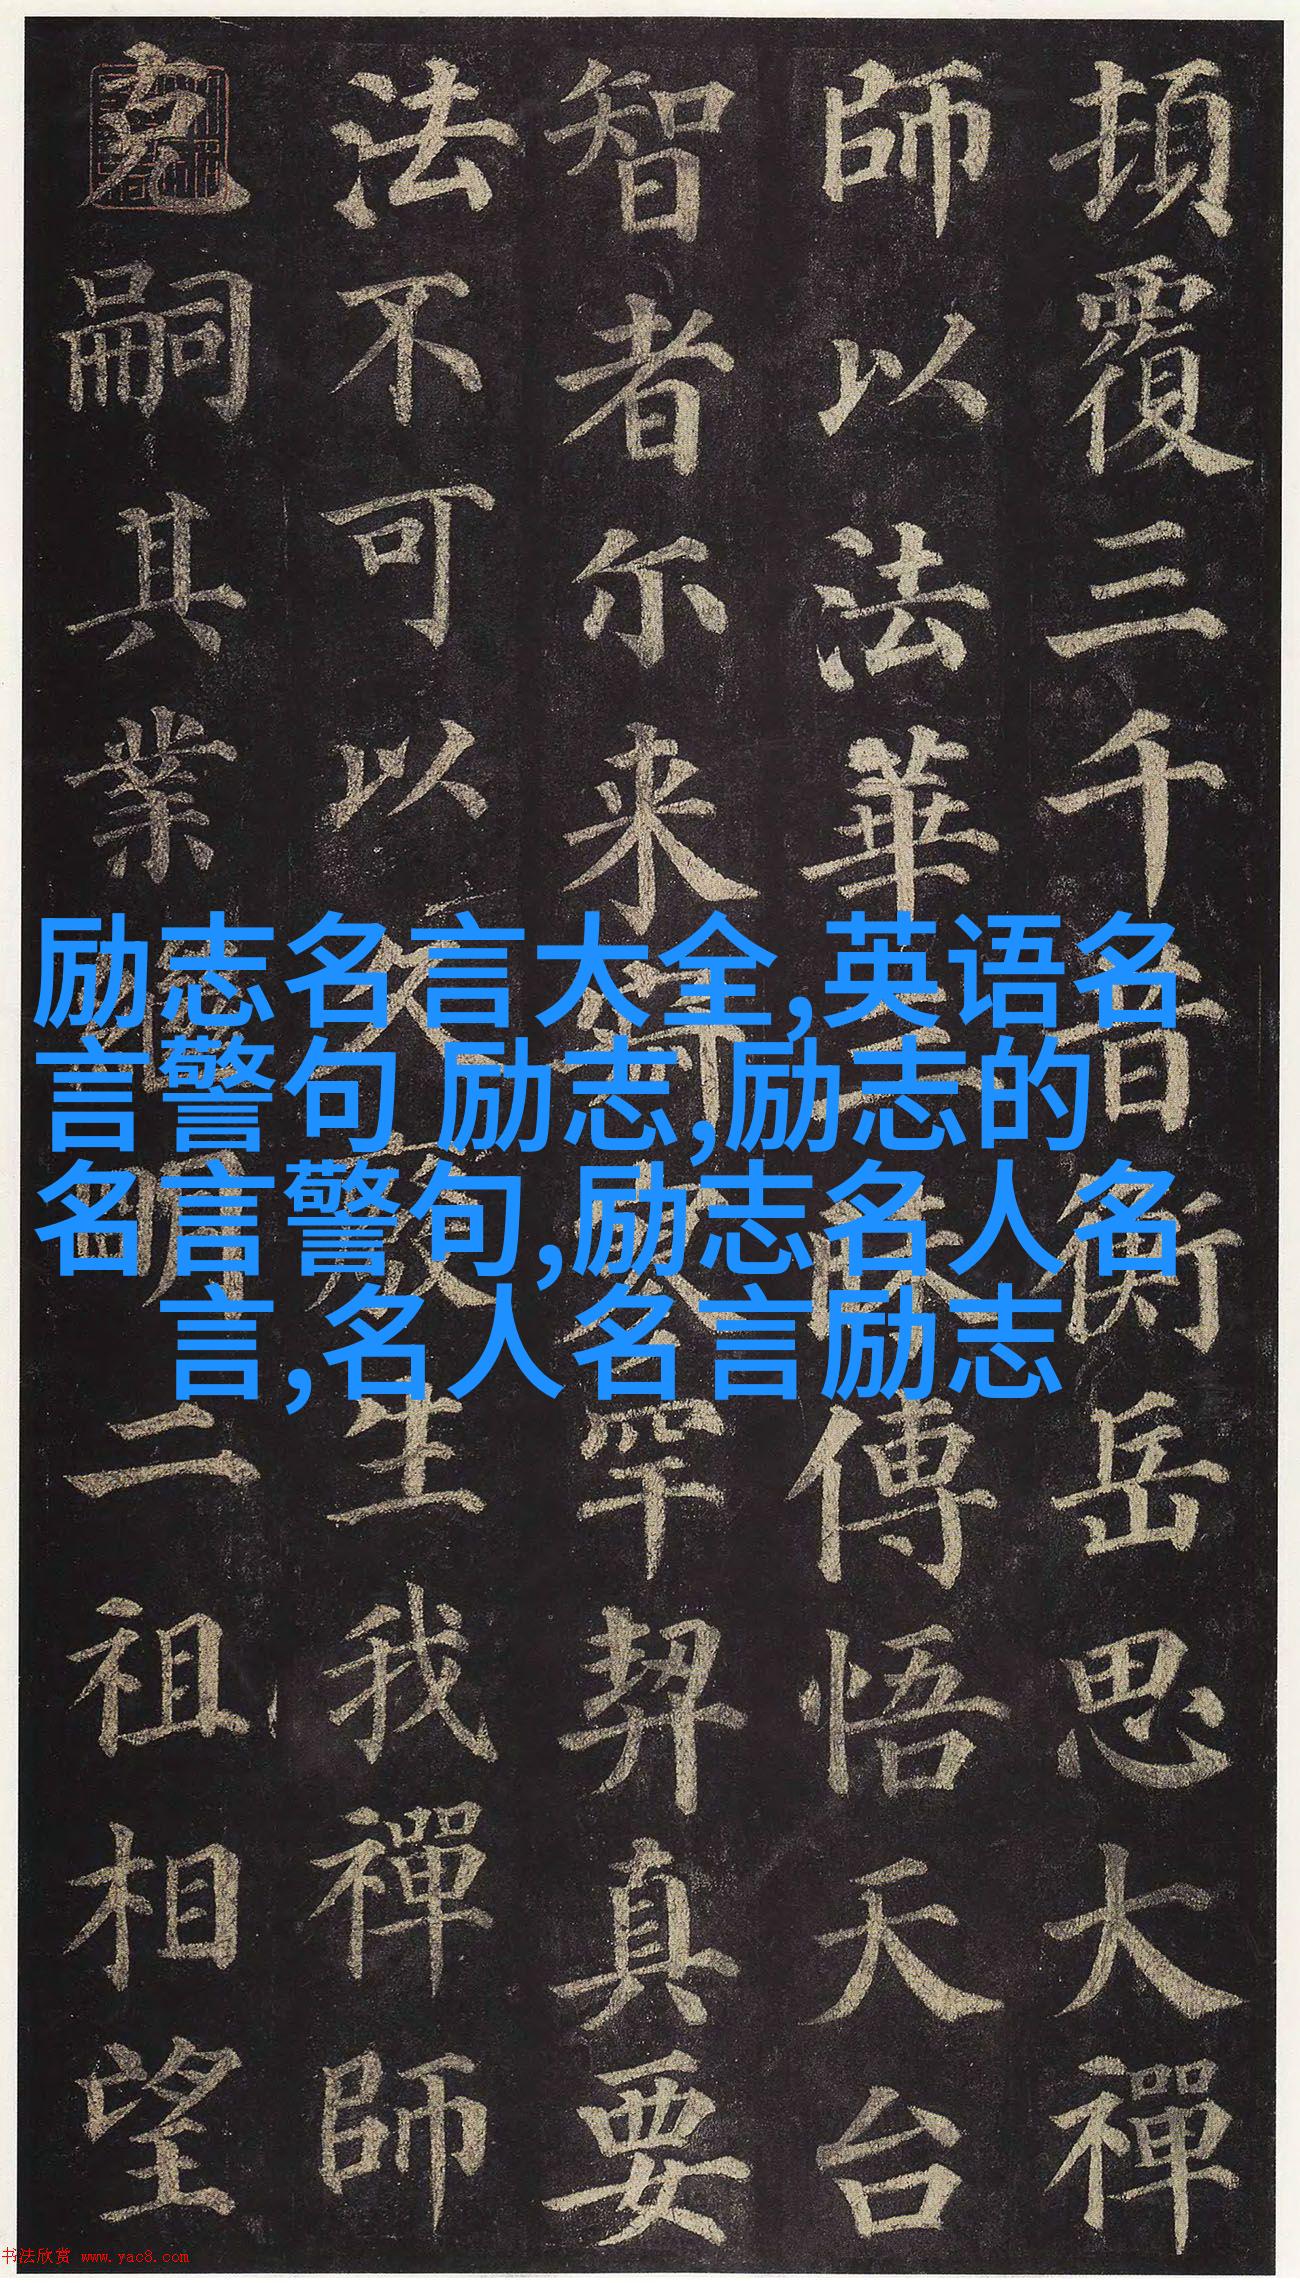 頓覆三千昔衡岳思大禪
師以法華三昧傳悟天台
智者尔来寂寥罕契真要
法不可以久廢生我禪師
克嗣其業繼明二祖相望
励志名言大全,英语名
言警句 励志,励志的
名言警句,励志名人名
言,名人名言励志
书法欣赏 www.yac8.com